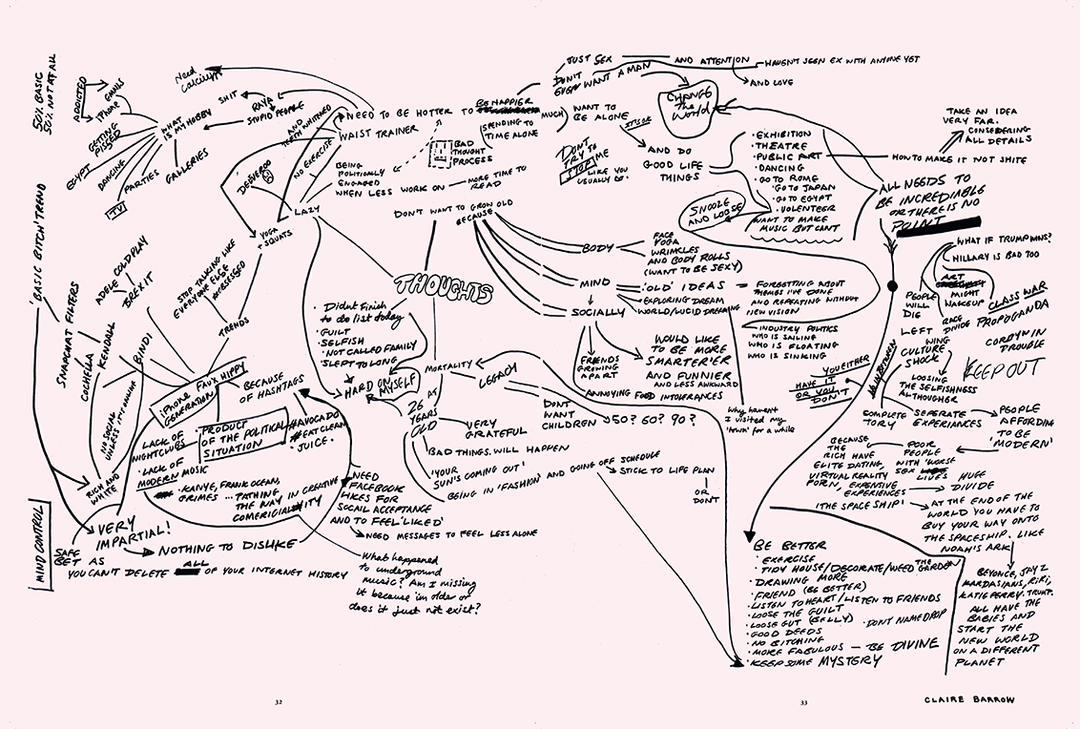 50% BASIC
50% NOT AT ALL
ADDICTED
GRAMS
iPHONE
GETTING PISSED
EGYPT
DANCING
TV
PARTIES
GALLERIES
WHAT IS MY HOBBY
Need Calcium
SHIT
RAYA
STUPID PEOPLE
AND TEETH WHITENED
NO EXERCISE
DELIVEROO
LAZY
YOGA
+ SQUATS
NEED TO BE HOTTER TO BE HAPPIER
WAIST TRAINER
SPENDING TO MUCH
TIME ALONE
BAD
THOUGHT
PROCESS
BEING
POLITICALLY
ENGAGED
WHEN LESS WORK ON — MORE TIME TO
READ
DON'T WANT TO GROW OLD
BECAUSE
JUST SEX
AND ATTENTION
HAVEN'T SEEN EX WITH ANYONE YET
AND LOVE
DON'T
EVEN WANT A MAN
WANT TO
BE ALONE
CHANGE
The
World
DON'T
TRY TO
STOP ME
LIKE YOU
USUALLY DO
AND DO
GOOD LIFE
THINGS
SNOOZE
AND LOOSE
· EXHIBITION
· THEATRE
· PUBLIC ART
· DANCING
· GO TO ROME
· GO TO JAPAN
· GO TO EGYPT
· VOLENTEER
WANT TO MAKE
MUSIC BUT CANT
HOW TO MAKE IT NOT SHITE
TAKE AN IDEA
VERY FAR.
CONSIDERING
ALL DETAILS
ALL NEEDS TO
BE INCREDIBLE
OR THERE IS NO
POINT
BASIC BITCH TREND
SNAPCHAT FILTERS
COCHELLA
KENDALL
ADELE
COLDPLAY
BREXIT
BINDI
STOP TALKING LIKE
EVERYONE ELSE
#OBSESSED
TRENDS
THOUGHTS
BODY
FACE
YOGA
WRINKLES
AND BODY ROLLS
(WANT TO BE SEXY)
MIND
'OLD' IDEAS
FORGETTING ABOUT
THEMES I'VE DONE
AND REPEATING WITHOUT
NEW VISION
EXPLORING DREAM
WORLD/LUCID DREAMING
SOCIALLY
INDUSTRY POLITICS
WHO IS SAILING
WHO IS FLOATING
WHO IS SINKING
FRIENDS
GROWING
APART
WOULD LIKE
TO BE MORE
SMARTER'ER
AND FUNNIER
AND LESS AWKWARD
ANNOYING FOOD INTOLERANCES
Why haven't
I visited my
'town' for a while
WHAT IF TRUMP WINS?
HILLARY IS BAD TOO
ART
MIGHT
WAKE UP
PEOPLE
WILL
DIE
RACE
DIVIDE
CLASS WAR
PROPOGANDA
LEFT
WING
CULTURE
SHOCK
CORBYN IN
TROUBLE
KEEP OUT
LOOSING
THE SELFISHNESS
ALTHOUGHER
YOU EITHER
HAVE IT
OR YOU
DON'T
COMPLETE SEPERATE
TORY EXPERIANCES
PEOPLE
AFFORDING
TO BE
'MODERN'
BECAUSE
THE
RICH HAVE
ELITE DATING,
VIRTUAL REALITY
PORN, EXPENTIVE
EXPERIENCES
POOR
PEOPLE
WITH 'WORSE'
SEX LIVES
HUGE
DIVIDE
'THE SPACE SHIP'
AT THE END OF THE
WORLD YOU HAVE TO
BUY YOUR WAY ONTO
THE SPACESHIP. LIKE
NOAH'S ARK
BEYONCE, JAY Z
KARDASIANS, RIRI,
KATIE PERRY. TRUMP.
ALL HAVE THE
BABIES AND
START THE
NEW WORLD
ON A DIFFERENT
PLANET
· Didnt finish
to do list today
· GUILT
· SELFISH
· NOT CALLED FAMILY
· SLEPT TO LONG
HARD ON MYSELF
MORTALITY
LEGACY
DONT
WANT
CHILDREN
50? 60? 90?
26 AT
YEARS
OLD
VERY
GRATEFUL
BAD THINGS WILL HAPPEN
'YOUR
SUN'S COMING OUT'
BEING IN 'FASHION' AND GOING OFF SCHEDULE
STICK TO LIFE PLAN
OR
DONT
iPhone FAUX HIPPY
GENERATION
BECAUSE
OF HASHTAGS
NO SOCIAL
UNLESS
LACK OF
NIGHTCLUBS
· LACK OF
MODERN MUSIC
PRODUCT
OF THE POLITICAL
SITUATION
#AVOCADO
#EATCLEAN
JUICE·
· KANYE, FRANK OCEAN,
GRIMES ... PATHING
THE WAY IN CREATIVE
COMERICIALITY
NEED
FACEBOOK
LIKES FOR
SOCAIL ACCEPTANCE
AND TO FEEL 'LIKED'
NEED MESSAGES TO FEEL LESS ALONE
What happened
to underground
music? Am I missing
it because im older or
does it just not exist?
RICH AND
WHITE
MIND CONTROL
VERY
IMPARTIAL!
NOTHING TO DISLIKE
SAFE
BET AS
YOU CAN'T DELETE ALL OF YOUR INTERNET HISTORY
BE BETTER
· EXERCISE
· TIDY HOUSE/DECORATE/WEED THE GARDEN
· DRAWING MORE
· FRIEND (BE BETTER)
· LISTEN TO HEART/LISTEN TO FRIENDS
· LOOSE THE GUILT
· LOOSE GUT (BELLY) · DONT NAMEDROP
· GOOD DEEDS
· NO BITCHING
· MORE FABULOUS — BE DIVINE
· KEEP SOME MYSTERY
32
33
CLAIRE BARROW